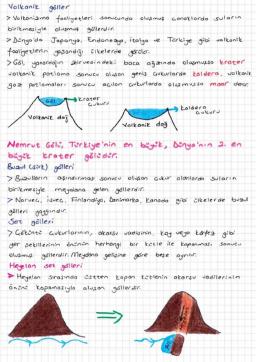 Volkanik göller
> Volkanizma faaliyetleri sonucunda oluşmuş çanaklarda suların
birikmesiyle oluşmuş göllerdir.
> Dünya'da Japonya, Endonezya, İtalya ve Türkiye gibi volkanik
faaliyetlerin yaşandığı ülkelerde görülür.
> Göl yanardağın zirvesindeki baca ağzında oluşmuşsa krater
volkanik patlama sonucu oluşan geniş çukurlarda kaldera, volkanik
gaz patlamaları sonucu açılan çukurlarda oluşmuşsa maar denir
Göl
krater
çukuru
Volkanik dağ
kaldera
çukuru
Volkanik dağ
Nemrut Gölü, Türkiye'nin en büyük, Dünya'nın 2. en
büyük krater gölüdür.
Buzul (sirk) gölleri
> Buzulların aşındırması sonucu oluşan çukur alanlarda suların
birikmesiyle meydana gelen göllerdir.
> Norveç, İsveç, Finlandiya, Danimarka, Kanada gibi ülkelerde buzul
gölleri yaygındır.
Set gölleri
> Çöküntü çukurlarının, akarsu vadisinin, koy veya körfez gibi
yer şekillerinin önünün herhangi bir kütle ile kapanması sonucu
oluşmuş göllerdir. Meydana gelişine göre beşe ayrılır.
Heyelan set gölleri
> Heyelan sırasında üstten kopan kütlenin akarsu vadilerinin
önünü kapamasıyla oluşan göllerdir.